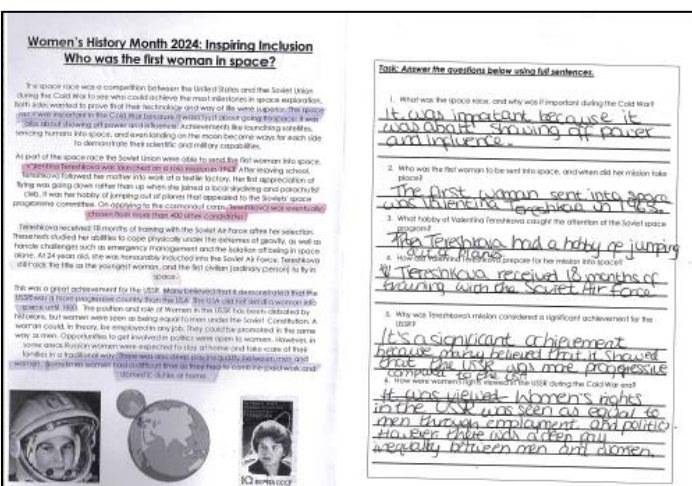 Women's History Month 2024: Inspiring Inclusion
Who was the first woman in space?
The space race was a competition between the United States and the Soviet Union
during the Cold War to see who could achieve the most milestones in space exploration.
Both sides wanted to prove that their technology and way of life were superior. The space
race it was important in the Cold War because it wasn't just about going to space; it was
also about showing off power and influence. Achievements like launching satellites,
sending humans into space, and even landing on the moon became ways for each side
to demonstrate their scientific and military capabilities.
As part of the space race the Soviet Union were able to send the first woman into space.
Valentina Tereshkova was launched on a solo mission in 1963. After leaving school,
Tereshkova followed her mother into work at a textile factory. Her first appreciation of
flying was going down rather than up when she joined a local skydiving and parachutist
club. It was her hobby of jumping out of planes that appealed to the Soviets' space
programme committee. On applying to the cosmonaut corps, Tereshkova was eventually
chosen from more than 400 other candidates.
Tereshkova received 18 months of training with the Soviet Air Force after her selection.
These tests studied her abilities to cope physically under the extremes of gravity, as well as
handle challenges such as emergency management and the isolation of being in space
alone. At 24 years old, she was honourably inducted into the Soviet Air Force. Tereshkova
still holds the title as the youngest woman, and the first civilian (ordinary person) to fly in
space.
This was a great achievement for the USSR. Many believed that it demonstrated that the
USSR was a more progressive country than the USA. The USA did not send a woman into
space until 1983. The position and role of Women in the USSR has been debated by
historians, but women were seen as being equal to men under the Soviet Constitution. A
woman could, in theory, be employed in any job. They could be promoted in the same
way as men. Opportunities to get involved in politics were open to women. However, in
some areas Russian women were expected to stay at home and take care of their
families in a traditional way. There was also deep inequality between men and
women. Sometimes women had a difficult time as they had to combine paid work and
domestic duties at home.
Task: Answer the questions below using full sentences.
1. What was the space race, and why was it important during the Cold War?
It was important because it
was about showing off power
and influence.
2. Who was the first woman to be sent into space, and when did her mission take
place?
The first woman sent into space
was Valentina Tereshkova in 1963.
3. What hobby of Valentina Tereshkova caught the attention of the Soviet space
program?
Tereshkova had a hobby of jumping
out of planes.
4. How did Valentina Tereshkova prepare for her mission into space?
Tereshkova received 18 months of
training with the Soviet Air Force
5. Why was Tereshkova's mission considered a significant achievement for the
USSR?
It's a significant achievement
because many believed that it showed
that the USSR was more progressive
compared to the USA
6. How were women's rights viewed in the USSR during the Cold War era?
It was viewed Women's rights
in the USSR was seen as equal to
men through employment and politics
However there was a deep
inequality between men and women.